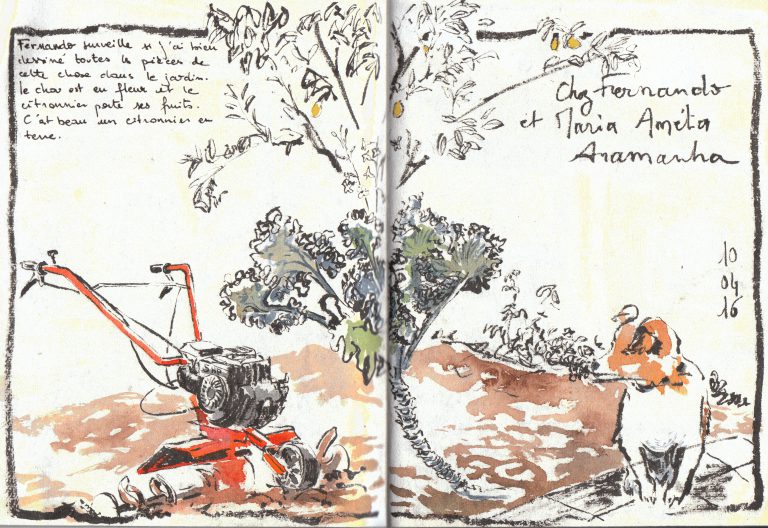 Fernando surveille si j'ai bien
dessiné toutes les pièces de
cette chose dans le jardin.
le chou est en fleur et le
citronnier porte ses fruits.
C'est beau un citronnier en
terre.
Chez Fernando
et Maria Amélia
Aramanha
10
04
16